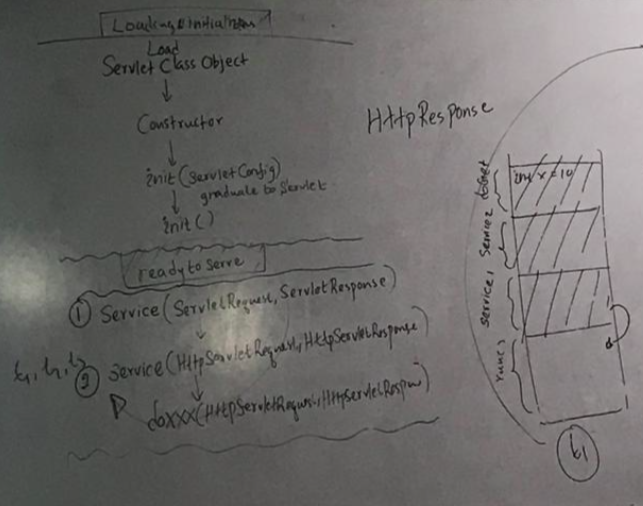 Loading & initialization
Load
Servlet Class Object
Constructor
init(ServletConfig)
graduate to Servlet
init()
ready to serve
① Service(ServletRequest, ServletResponse)
t1, t2, t3
② service(HttpServletRequest, HttpServletResponse)
doXXX(HttpServletRequest, HttpServletRespon)
HttpResponse
int x = 10
doGet
Service2
Service1
run
t1